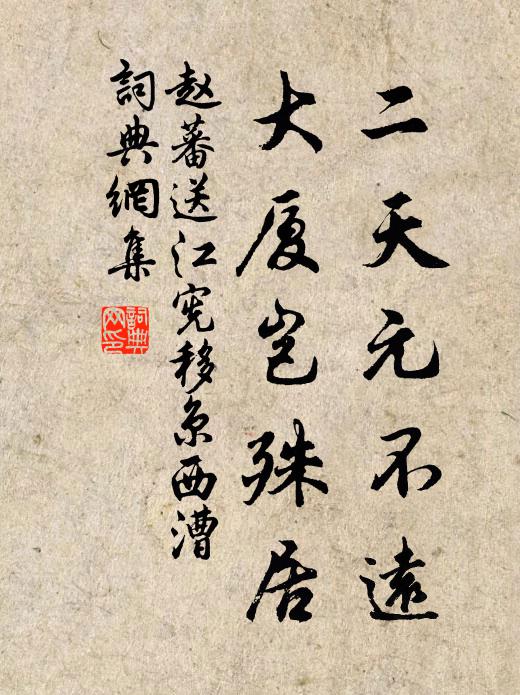 二天元不遠
大厦岂殊居
赵蕃送江宪移京西漕
詞典網集
詞典網印